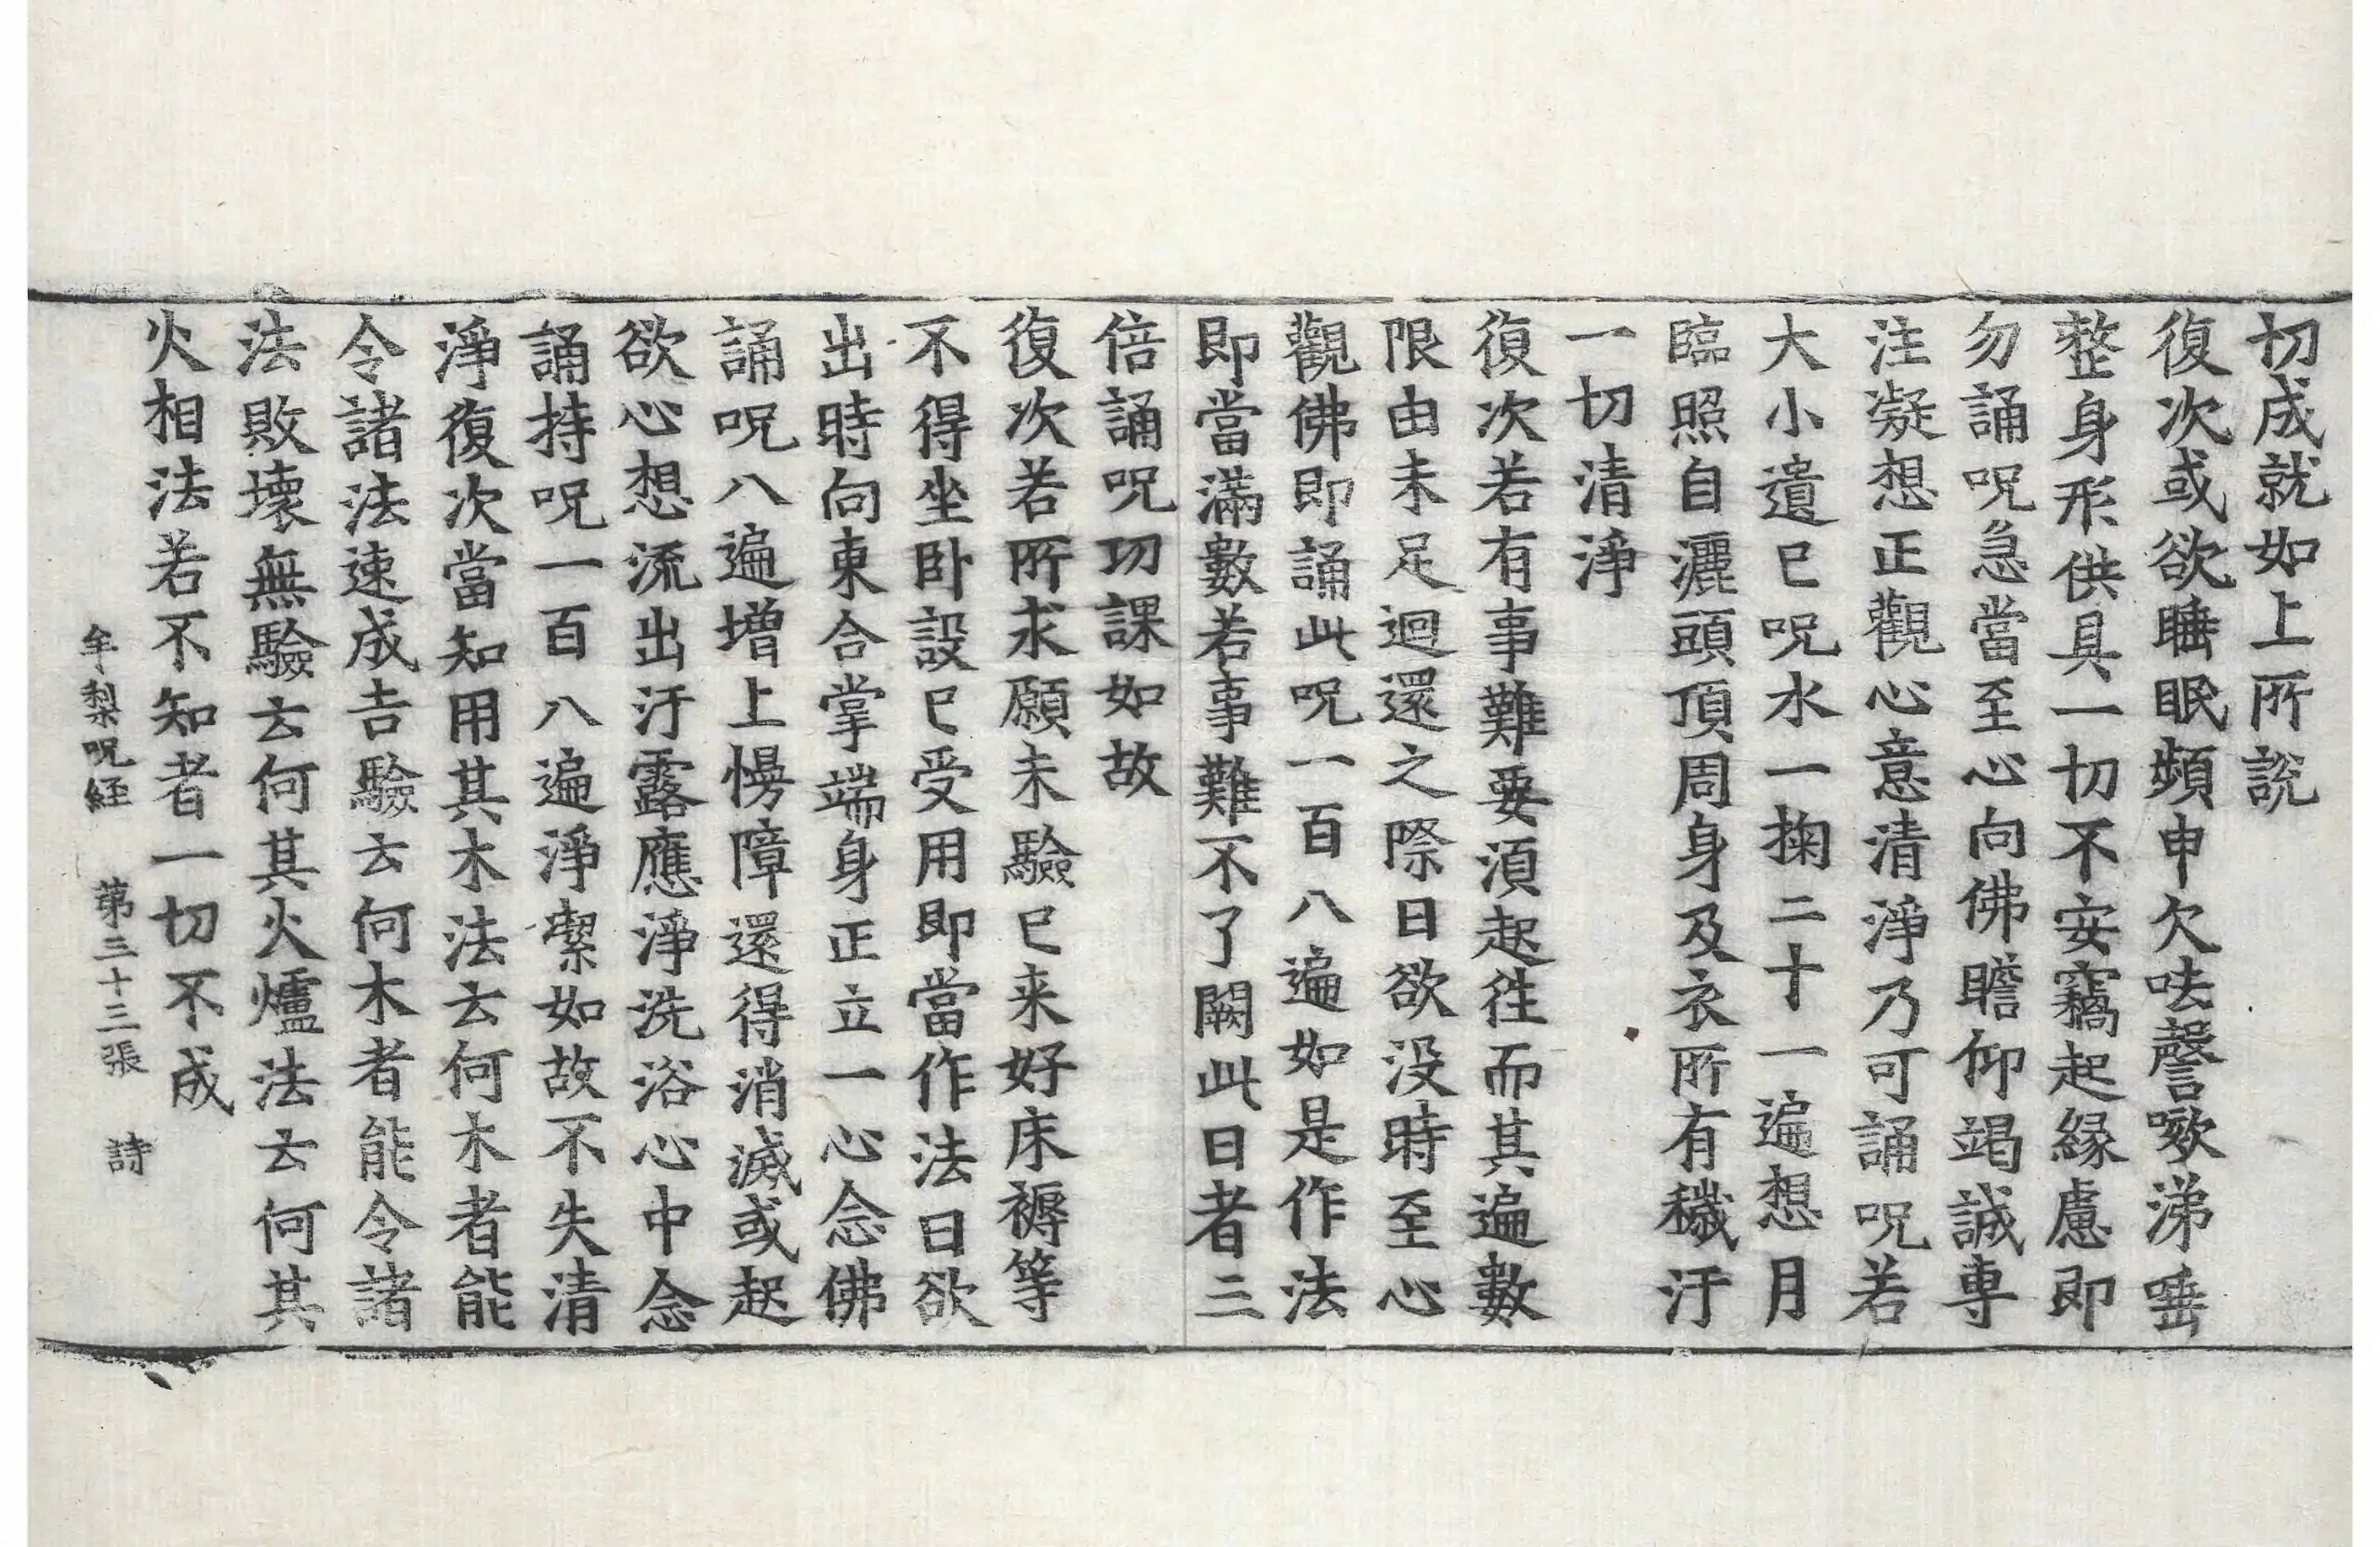 切成就如上所說
復次或欲睡眠頻申欠呿謦噷涕唾
整身形供具一切不安竊起緣慮即
勿誦呪急當至心向佛瞻仰竭誠專
注凝想正觀心意清淨乃可誦呪若
大小遺已呪水一掬二十一遍想月
臨照自灑頭頂周身及衣所有穢汙
一切清淨
復次若有事難要須起往而其遍數
限由未足迴還之際日欲没時至心
觀佛即誦此呪一百八遍如是作法
即當滿數若事難不了闕此日者三
倍誦呪功課如故
復次若所求願未驗已来好床褥等
不得坐卧設已受用即當作法日欲
出時向東合掌端身正立一心念佛
誦呪八遍增上慢障還得消滅或起
欲心想流出汙露應淨洗浴心中念
誦持呪一百八遍淨潔如故不失清
淨復次當知用其木法云何木者能
令諸法速成吉驗云何木者能令諸
法敗壞無驗云何其火爐法云何其
火相法若不知者一切不成
牟梨呪経 第三十三張 詩